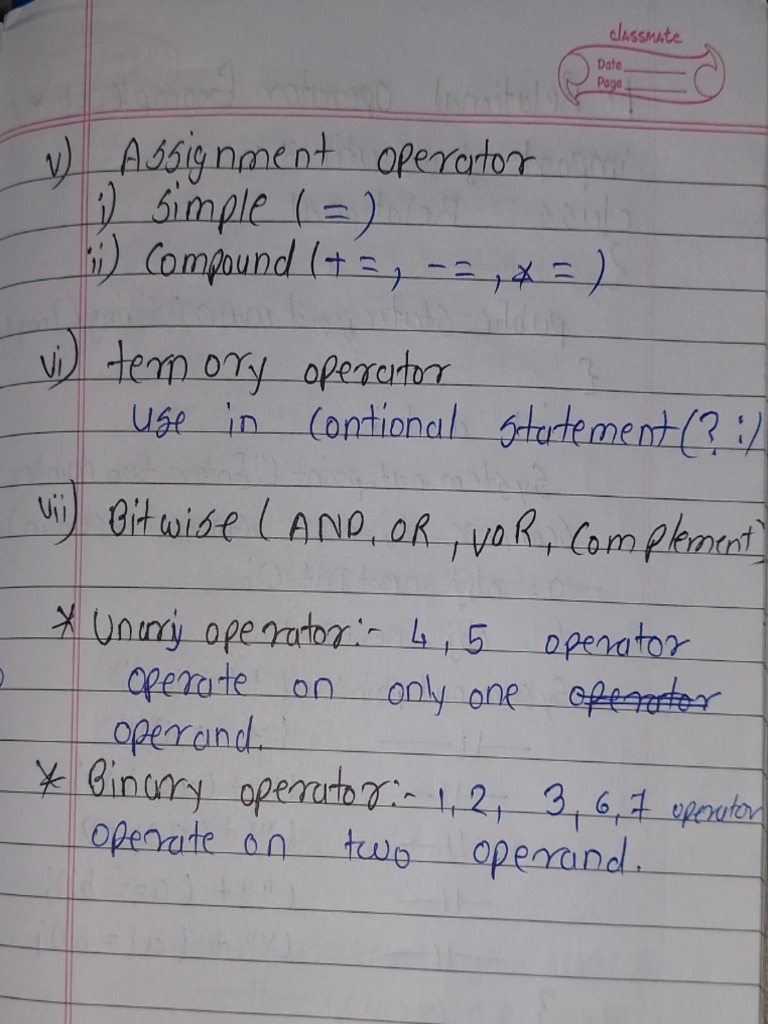 classmate
Date
Page
v) Assignment operator
i) Simple (=)
ii) Compound (+=, -=, *=)
vi) ternory operator
Use in Contional statement (? :)
vii) Bitwise (AND, OR, XOR, Complement)
* Unary operator:- 4, 5 operator
operate on only one operator
operand.
* Binary operator:- 1, 2, 3, 6, 7 operator
operate on two operand.